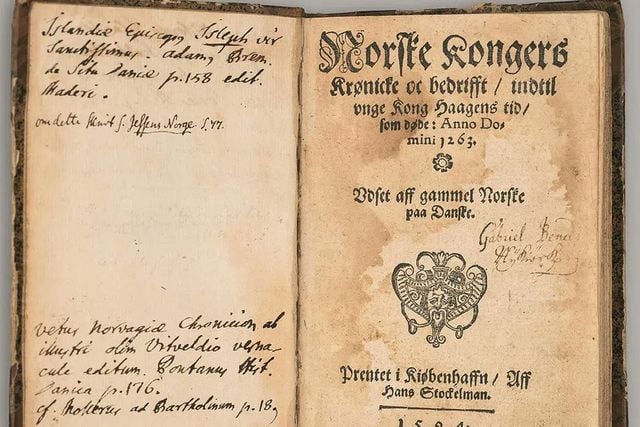 Islandiæ Episcopus Isleph vir
Sanctissimus. adamus Brem.
de Situ Daniæ p.158 edit.
Maderi.
om dette skrift s. Jessens Norge S. 77.
vetus norvagiæ Chronicon ab
illustri olim Vitveldio verna-
cule editum. Pontanus Hist.
Danica p.176.
cf. Mollerus ad Bartholinum p. 18
Norske Kongers
Krønicke oc bedrifft / indtil
vnge Kong Haagens tid /
som døde: Anno Do-
mini 1263.
Vdset aff gammel Norske
paa Danske.
Gabriel
Prentet i Kiøbenhaffn / Aff
Hans Stockelman.
1594.